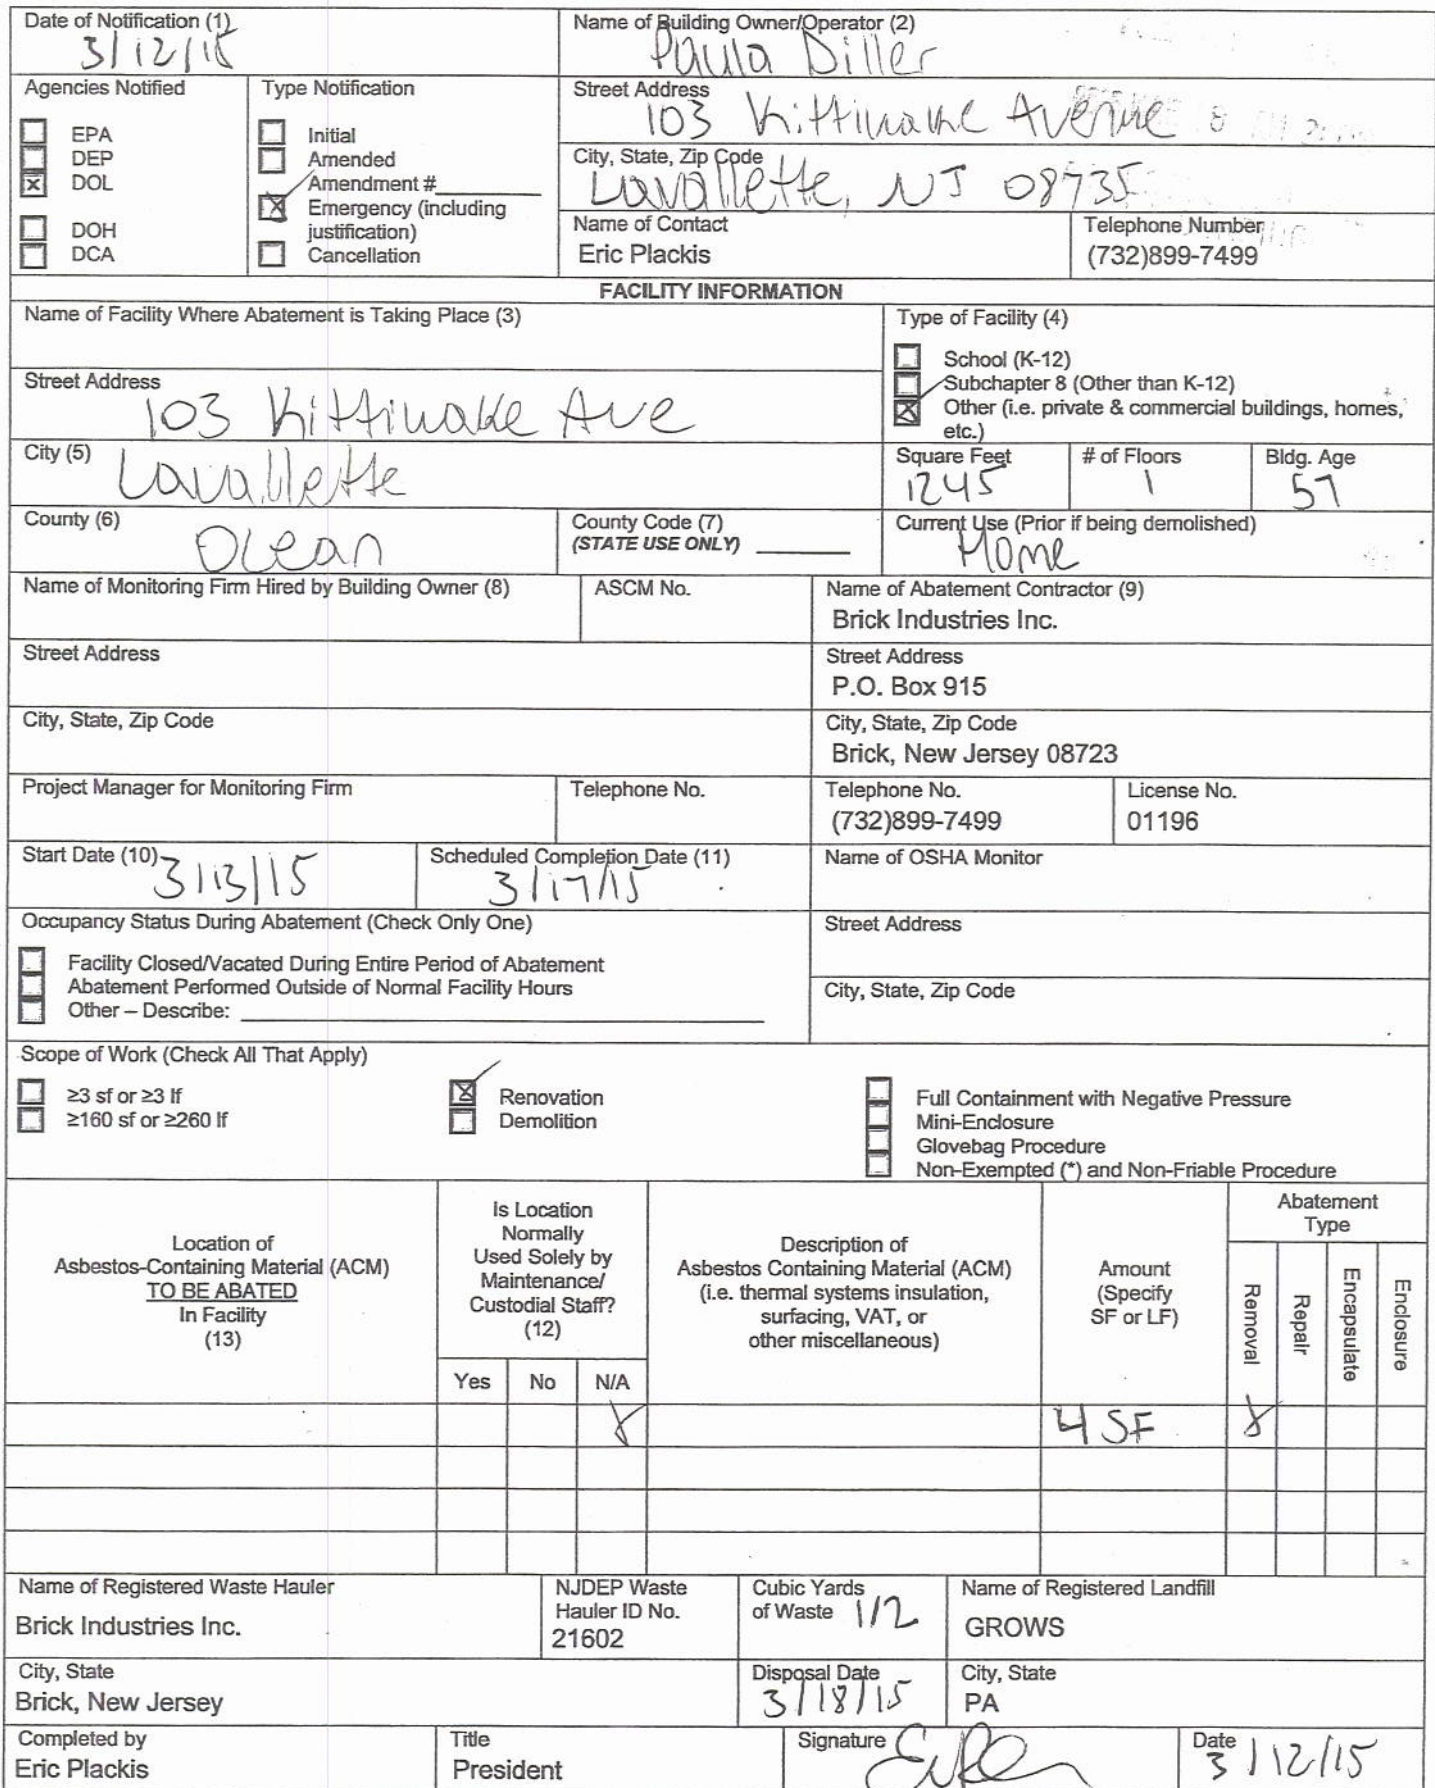 Date of Notification (1)
3/12/15
Name of Building Owner/Operator (2)
Paula Diller
Agencies Notified
EPA
DEP
DOL
DOH
DCA
Type Notification
Initial
Amended
Amendment #
Emergency (including
justification)
Cancellation
Street Address
103 Kittiwake Avenue
City, State, Zip Code
Lavallette, NJ 08735
Name of Contact
Eric Plackis
Telephone Number
(732)899-7499
FACILITY INFORMATION
Name of Facility Where Abatement is Taking Place (3)
Type of Facility (4)
School (K-12)
Subchapter 8 (Other than K-12)
Other (i.e. private & commercial buildings, homes,
etc.)
Street Address
103 Kittiwake Ave
City (5)
Lavallette
Square Feet
1245
# of Floors
1
Bldg. Age
57
County (6)
Ocean
County Code (7)
(STATE USE ONLY)
Current Use (Prior if being demolished)
Home
Name of Monitoring Firm Hired by Building Owner (8)
ASCM No.
Name of Abatement Contractor (9)
Brick Industries Inc.
Street Address
Street Address
P.O. Box 915
City, State, Zip Code
City, State, Zip Code
Brick, New Jersey 08723
Project Manager for Monitoring Firm
Telephone No.
Telephone No.
(732)899-7499
License No.
01196
Start Date (10)
3/13/15
Scheduled Completion Date (11)
3/17/15
Name of OSHA Monitor
Occupancy Status During Abatement (Check Only One)
Facility Closed/Vacated During Entire Period of Abatement
Abatement Performed Outside of Normal Facility Hours
Other – Describe:
Street Address
City, State, Zip Code
Scope of Work (Check All That Apply)
≥3 sf or ≥3 lf
≥160 sf or ≥260 lf
Renovation
Demolition
Full Containment with Negative Pressure
Mini-Enclosure
Glovebag Procedure
Non-Exempted (*) and Non-Friable Procedure
Location of
Asbestos-Containing Material (ACM)
TO BE ABATED
In Facility
(13)
Is Location
Normally
Used Solely by
Maintenance/
Custodial Staff?
(12)
Yes
No
N/A
Description of
Asbestos Containing Material (ACM)
(i.e. thermal systems insulation,
surfacing, VAT, or
other miscellaneous)
Amount
(Specify
SF or LF)
Abatement
Type
Removal
Repair
Encapsulate
Enclosure
X
4 SF
X
Name of Registered Waste Hauler
Brick Industries Inc.
NJDEP Waste
Hauler ID No.
21602
Cubic Yards
of Waste 1/2
Name of Registered Landfill
GROWS
City, State
Brick, New Jersey
Disposal Date
3/18/15
City, State
PA
Completed by
Eric Plackis
Title
President
Signature
Date
3/12/15